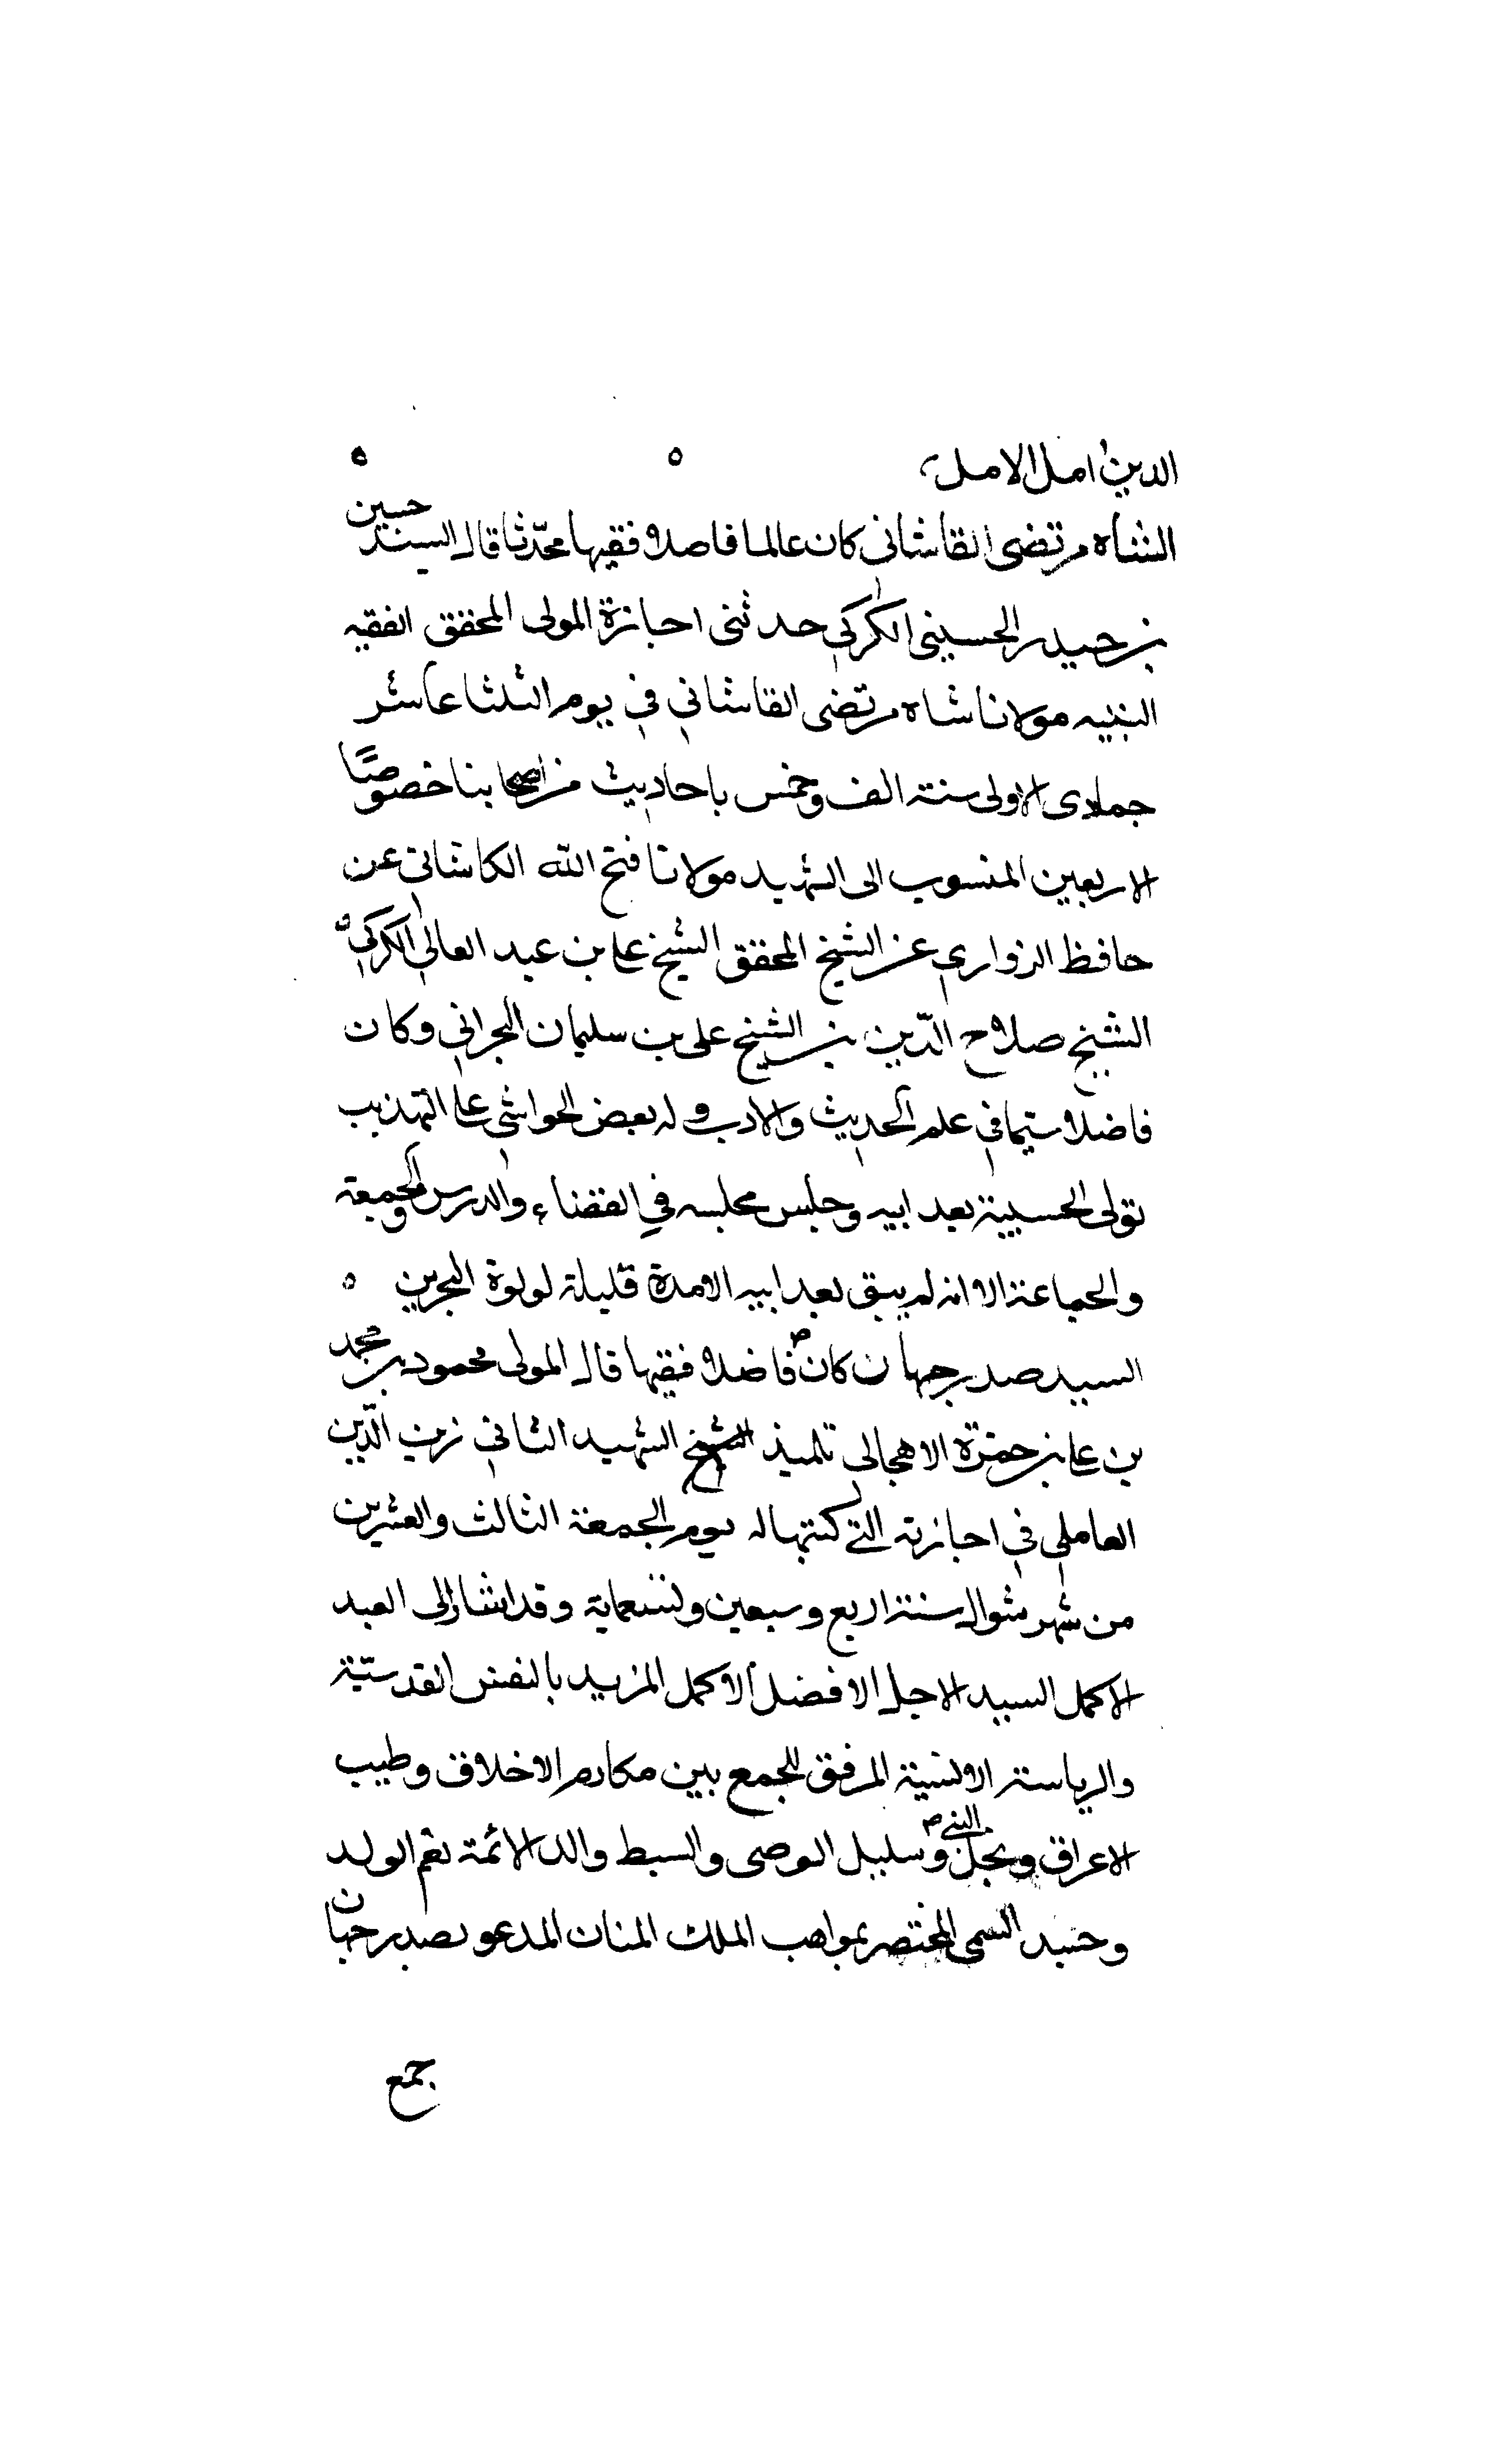 الدين امل الامل
الشاه مرتضى القاشانى كان عالما فاضلا فقيها محدّثا قال السيد حسين
بن حيدر الحسينى الكركي حدثنى اجازة المولى المحقق الفقيه
النبيه مولانا شاه مرتضى القاشاني في يوم الثلثا عاشر
جمادى الاولى سنة الف وخمس باحاديث من اصحابنا خصوصًا
الاربعين المنسوب الى الشهيد مولانا فتح الله الكاشاني عن
حافظ الزواري عن الشيخ المحقق الشيخ على بن عبد العالي الكركي
الشيخ صلاح الدّين بن الشيخ على بن سليمان البحراني وكان
فاضلا سيّما في علم الحديث والادب وله بعض الحواشي على التهذيب
تولى الحسبية بعد ابيه وجلس مجلسه في القضاء والدرس والجمعة
والجماعة الا انه لم يبق بعد ابيه الا مدة قليلة لولوة البحرين
السيد صدر جهان كان فاضلا فقيها قال المولى محمود بن محمد
بن على بن حمزة الاهجالى تلميذ الشيخ الشهيد الثاني زين الدّين
العاملي في اجازته التي كتبها له يوم الجمعة الثالث والعشرين
من شهر شوال سنة اربع وسبعين وتسعماية وقد اشار الى العبد
الاكمل السيد الاجل الافضل الاكمل المزيد بالنفس القدسيّة
والرياسة الانسية المرفق للجمع بين مكارم الاخلاق وطيب
الاعراق ونجل النبي ص وسليل الوصى والسبط والد الائمة نعم الولد
وحبيد السمى المختصر بمواهب الملك المنان المدعو بصدر جهان
جمع